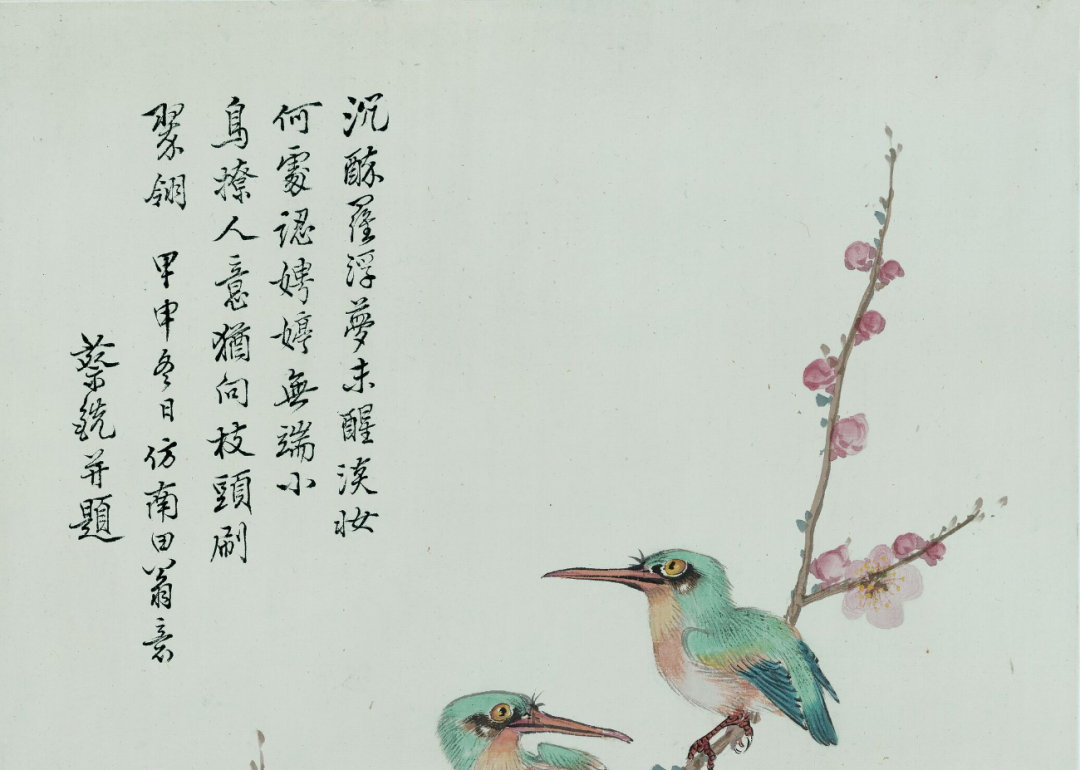 沉酥羅浮夢未醒淡妝
何處認娉婷無端小
鳥撩人意猶向枝頭刷
翠翎 甲申冬日仿南田翁意
蔡銑并題